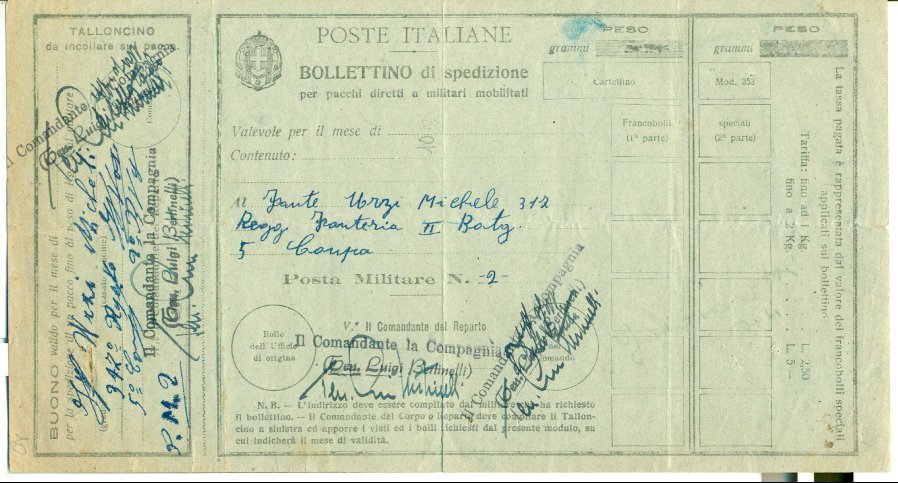 TALLONCINO
da incollare sul pacco
Il Comandante
BUONO valido per il mese di
per la spedizione di un pacco fino al peso di Kg.
Urzi Michele
P. M. 2
Il Comandante la Compagnia
(Ten. Luigi Bertinelli)
POSTE ITALIANE
BOLLETTINO di spedizione
per pacchi diretti a militari mobilitati
Valevole per il mese di
Contenuto:
Al Fante Urzi Michele 312
Regg Fanteria II Batg.
5 Compa
Posta Militare N. -2-
Bollo
dell'Ufficio
di origine
V.° Il Comandante del Reparto
Il Comandante la Compagnia
(Ten. Luigi Bertinelli)
N. B. — L'indirizzo deve essere compilato dal militare che ha richiesto
il bollettino. — Il Comandante del Corpo o Reparto deve compilare il Tallon-
cino a sinistra ed apporre i visti ed i bolli richiesti dal presente modulo, su
cui indicherà il mese di validità.
PESO
grammi
PESO
grammi
Cartellino
Mod. 253
Francobolli
(1ª parte)
speciali
(2ª parte)
La tassa pagata è rappresentata dal valore dei francobolli speciali
applicati sul bollettino.
Tariffa: fino ad 1 Kg. L. 2,50
fino a 2 Kg. L. 5 —